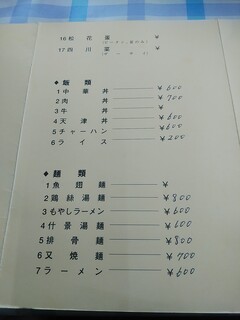 16 松花蛋 ¥
17 四川 ¥
◆飯類
1 中華丼 ¥800
2 肉丼 ¥700
3 牛丼 ¥
4 天津丼 ¥600
5 チャーハン ¥600
6 ライス ¥200
◆麺類
1 魚翅麺 ¥
2 鶏絲湯麺 ¥800
3 もやしラーメン ¥600
4 什景湯麺 ¥600
5 排骨麺 ¥800
6 叉焼麺 ¥700
7 ラーメン ¥600